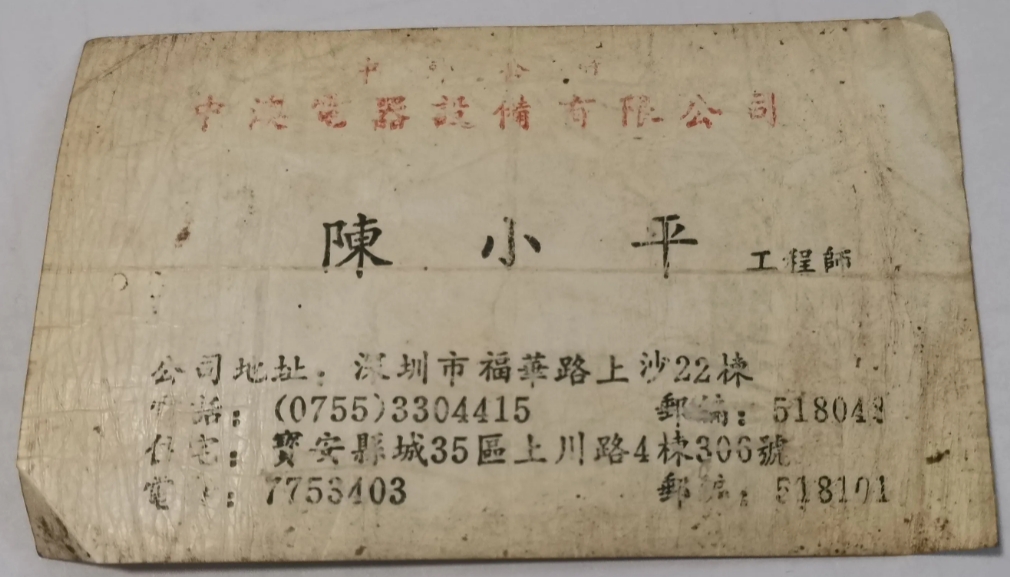 中澳電器設備有限公司
陳小平 工程師
公司地址：深圳市福華路上沙22棟
電話：(0755)3304415 郵編：518048
住宅：寳安縣城35區上川路4棟306號
電　：7753403 郵編：518101